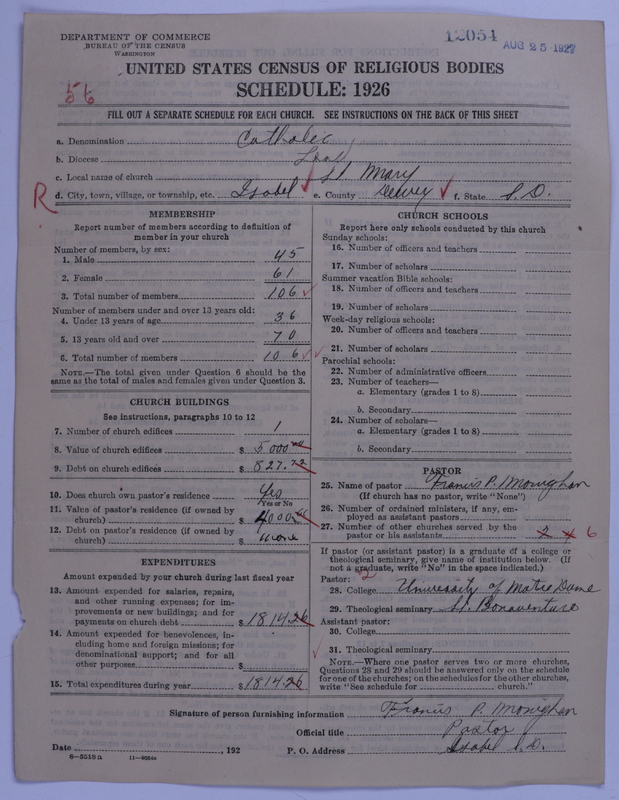 DEPARTMENT OF COMMERCE
BUREAU OF THE CENSUS
WASHINGTON
12054
AUG 25 1927
56
UNITED STATES CENSUS OF RELIGIOUS BODIES
SCHEDULE: 1926
FILL OUT A SEPARATE SCHEDULE FOR EACH CHURCH. SEE INSTRUCTIONS ON THE BACK OF THIS SHEET
a. Denomination Catholic
b. Diocese Lead
c. Local name of church St Mary
R d. City, town, village, or township, etc. Isabel e. County Dewey f. State S. D.
MEMBERSHIP
Report number of members according to definition of member in your church
Number of members, by sex:
1. Male 45
2. Female 61
3. Total number of members 106
Number of members under and over 13 years old:
4. Under 13 years of age 36
5. 13 years old and over 70
6. Total number of members 106
NOTE.—The total given under Question 6 should be
same as the total of males and females given under Question 3.
CHURCH BUILDINGS
See instructions, paragraphs 10 to 12
7. Number of church edifices 1
8. Value of church edifices $ 5000 00
9. Debt on church edifices $ 827.72
10. Does church own pastor's residence Yes
Yes or No
11. Value of pastor's residence (if owned by
church) $ 4000 00
12. Debt on pastor's residence (if owned by
church) $ none
EXPENDITURES
Amount expended by your church during last fiscal year
13. Amount expended for salaries, repairs,
and other running expenses; for im-
provements or new buildings; and for
payments on church debt $ 1814.26
14. Amount expended for benevolences, in-
cluding home and foreign missions; for
denominational support; and for all
other purposes $
15. Total expenditures during year $ 1814.26
CHURCH SCHOOLS
Report here only schools conducted by this church
Sunday schools:
16. Number of officers and teachers
17. Number of scholars
Summer vacation Bible schools:
18. Number of officers and teachers
19. Number of scholars
Week-day religious schools:
20. Number of officers and teachers
21. Number of scholars
Parochial schools:
22. Number of administrative officers
23. Number of teachers—
a. Elementary (grades 1 to 8)
b. Secondary
24. Number of scholars—
a. Elementary (grades 1 to 8)
b. Secondary
PASTOR
25. Name of pastor Francis P. Monighan
(If church has no pastor, write "None")
26. Number of ordained ministers, if any, em-
ployed as assistant pastors
27. Number of other churches served by the
pastor or his assistants 6
If pastor (or assistant pastor) is a graduate of a college or
theological seminary, give name of institution below. (If
not a graduate, write "No" in the space indicated.)
Pastor:
28. College University of Notre Dame
29. Theological seminary St. Bonaventure
Assistant pastor:
30. College
31. Theological seminary
NOTE.—Where one pastor serves two or more churches,
Questions 28 and 29 should be answered only on the schedule
for one of the churches; on the schedules for the other churches,
write "See schedule for church."
Signature of person furnishing information Francis P. Monighan
Official title Pastor
Date , 192 P. O. Address Isabel S. D.
8-5518a 11-9264a